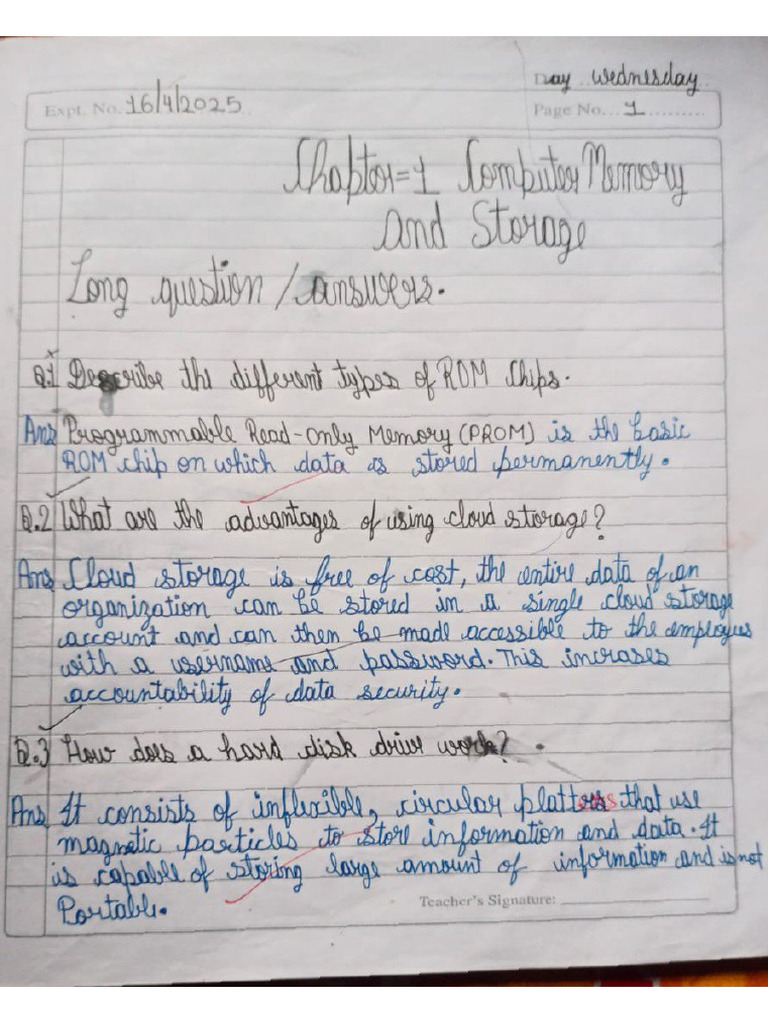 Day wednesday
Expt. No. 16/4/2025
Page No... 1
Chapter=1 Computer Memory
and Storage
Long question / answers.
Q.1 Describe the different types of ROM Chips.
Ans Programmable Read-Only Memory (PROM) is the basic
ROM chip on which data is stored permanently.
Q.2 What are the advantages of using cloud storage?
Ans Cloud storage is free of cost, the entire data of an
organization can be stored in a single cloud storage
account and can then be made accessible to the employees
with a username and password. This incrases
accountability of data security.
Q.3 How does a hard disk drive work?
Ans It consists of inflexible, circular platters that use
magnetic particles to store information and data. It
is capable of storing large amount of information and is not
Portable.
Teacher's Signature: